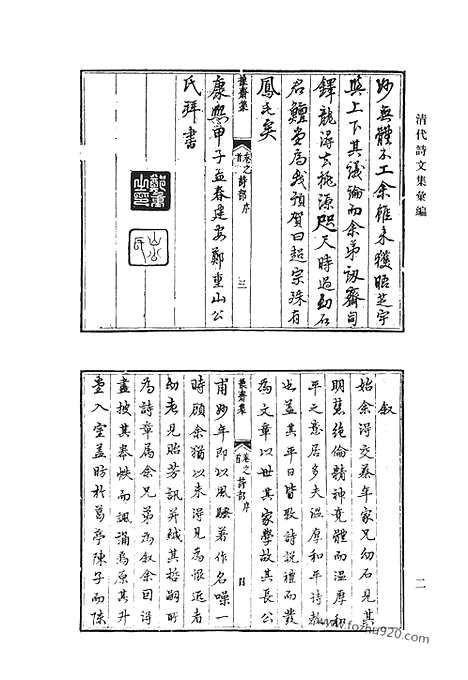 清代詩文集彙編
妙無體不工余雖未獲晤芝宇
與上下其議論而余弟訒齋司
鐸龍潯去桃源咫尺時過幼石
名鱣堂爲我預賀曰超宗殊有
鳳毛矣
康熙甲子孟春建安鄭重山公
氏拜書
齋集
卷之首
詩部序
三
山公氏
二
敘
始余得交蔡年家兄幼石見其
明慧絕倫精神竟體而溫厚和
平之意居多夫溫厚和平詩教
也蓋其平日皆敦詩說禮而發
爲文章以世其家學故其長公
甫妙年即以風騷著作名噪一
時顧余猶以未得見爲恨近者
幼老見貽芳訊并賦其哲嗣所
爲詩章屬余兄弟爲敘余因得
盡披其卷帙而諷誦焉原其升
堂入室蓋昉於葛亭陳子而陳
齋集
卷之首
詩部序
四
www.fozhu920.com